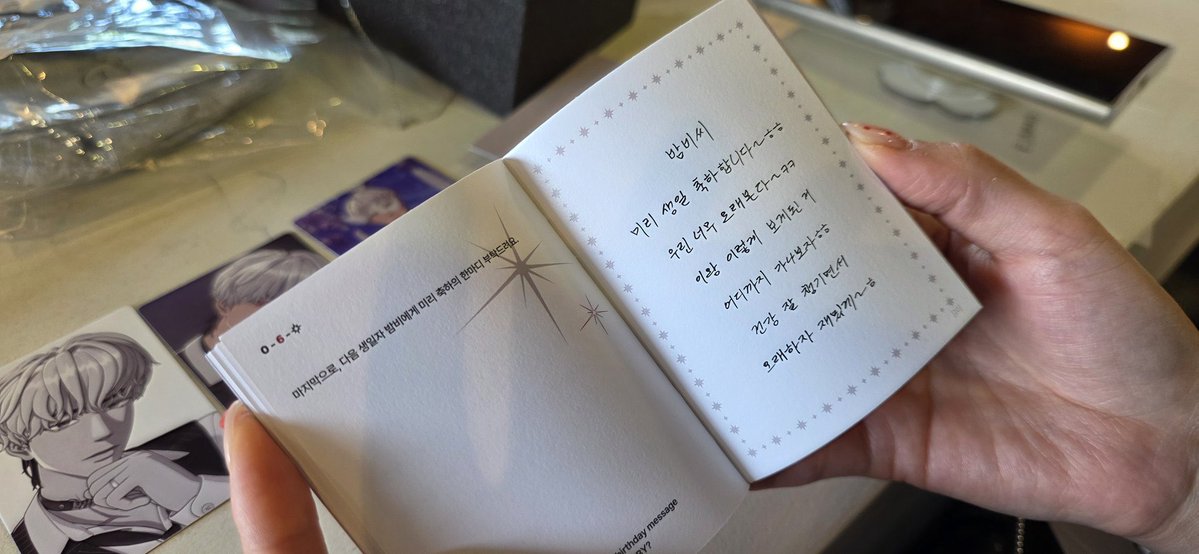 0-6-✡
마지막으로, 다음 생일자 밤비에게 미리 축하의 한마디 부탁드려요.
birthday message
BY?
밤비씨
미리 생일 축하합니다~ㅎㅎ
우린 너무 오래본다~ㅋㅋ
이왕 이렇게 보게된 게
어디까지 가나보자ㅎㅎ
건강 잘 챙기면서
오래하자 재밌게~ㅎ